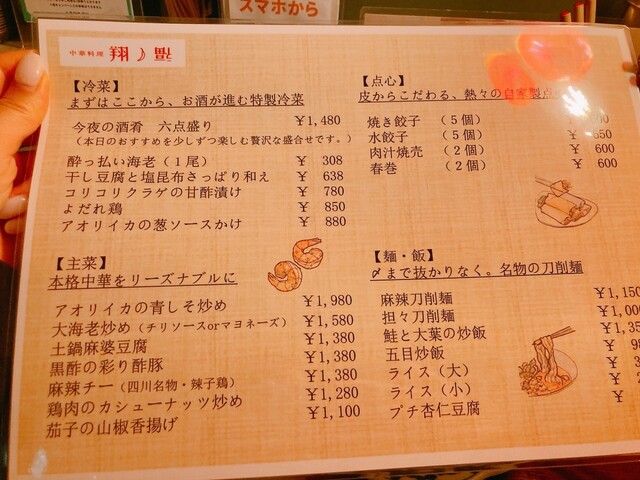 スマホから
中華料理 翔
【冷菜】
まずはここから、お酒が進む特製冷菜
今夜の酒肴 六点盛り ¥1,480
(本日のおすすめを少しずつ楽しむ贅沢な盛合せです。)
酔っ払い海老(1尾) ¥ 308
干し豆腐と塩昆布さっぱり和え ¥ 638
コリコリクラゲの甘酢漬け ¥ 780
よだれ鶏 ¥ 850
アオリイカの葱ソースかけ ¥ 880
【主菜】
本格中華をリーズナブルに
アオリイカの青しそ炒め ¥1,980
大海老炒め(チリソースorマヨネーズ) ¥1,580
土鍋麻婆豆腐 ¥1,380
黒酢の彩り酢豚 ¥1,380
麻辣チー(四川名物・辣子鶏) ¥1,380
鶏肉のカシューナッツ炒め ¥1,280
茄子の山椒香揚げ ¥1,100
【点心】
皮からこだわる、熱々の自家製点
焼き餃子 (5個)
水餃子 (5個)
肉汁焼売 (2個) ¥ 600
春巻 (2個) ¥ 600
【麺・飯】
〆まで抜かりなく。名物の刀削麺
麻辣刀削麺 ¥1,150
担々刀削麺 ¥1,00
鮭と大葉の炒飯 ¥1,35
五目炒飯 ¥
ライス(大) ¥
ライス(小) ¥
プチ杏仁豆腐 ¥